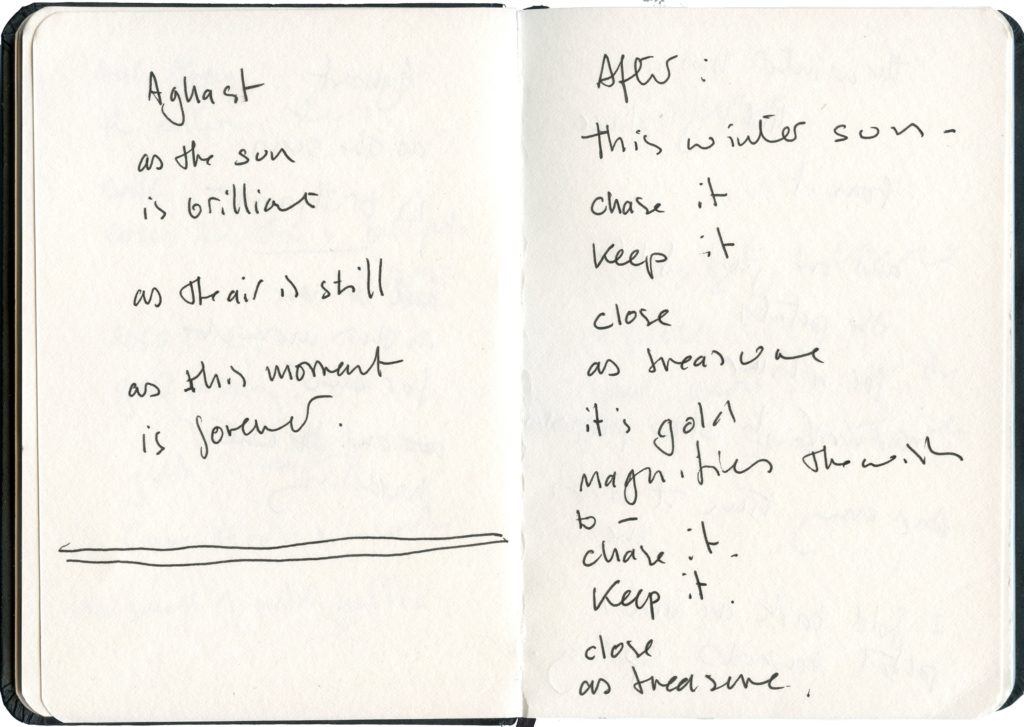 Aghast
as the sun
is brilliant
as the air is still
as this moment
is forever.
After :
this winter sun -
chase it
keep it
close
as treasure
it's gold
magnifies the wish
to -
chase it.
Keep it.
close
as treasure.